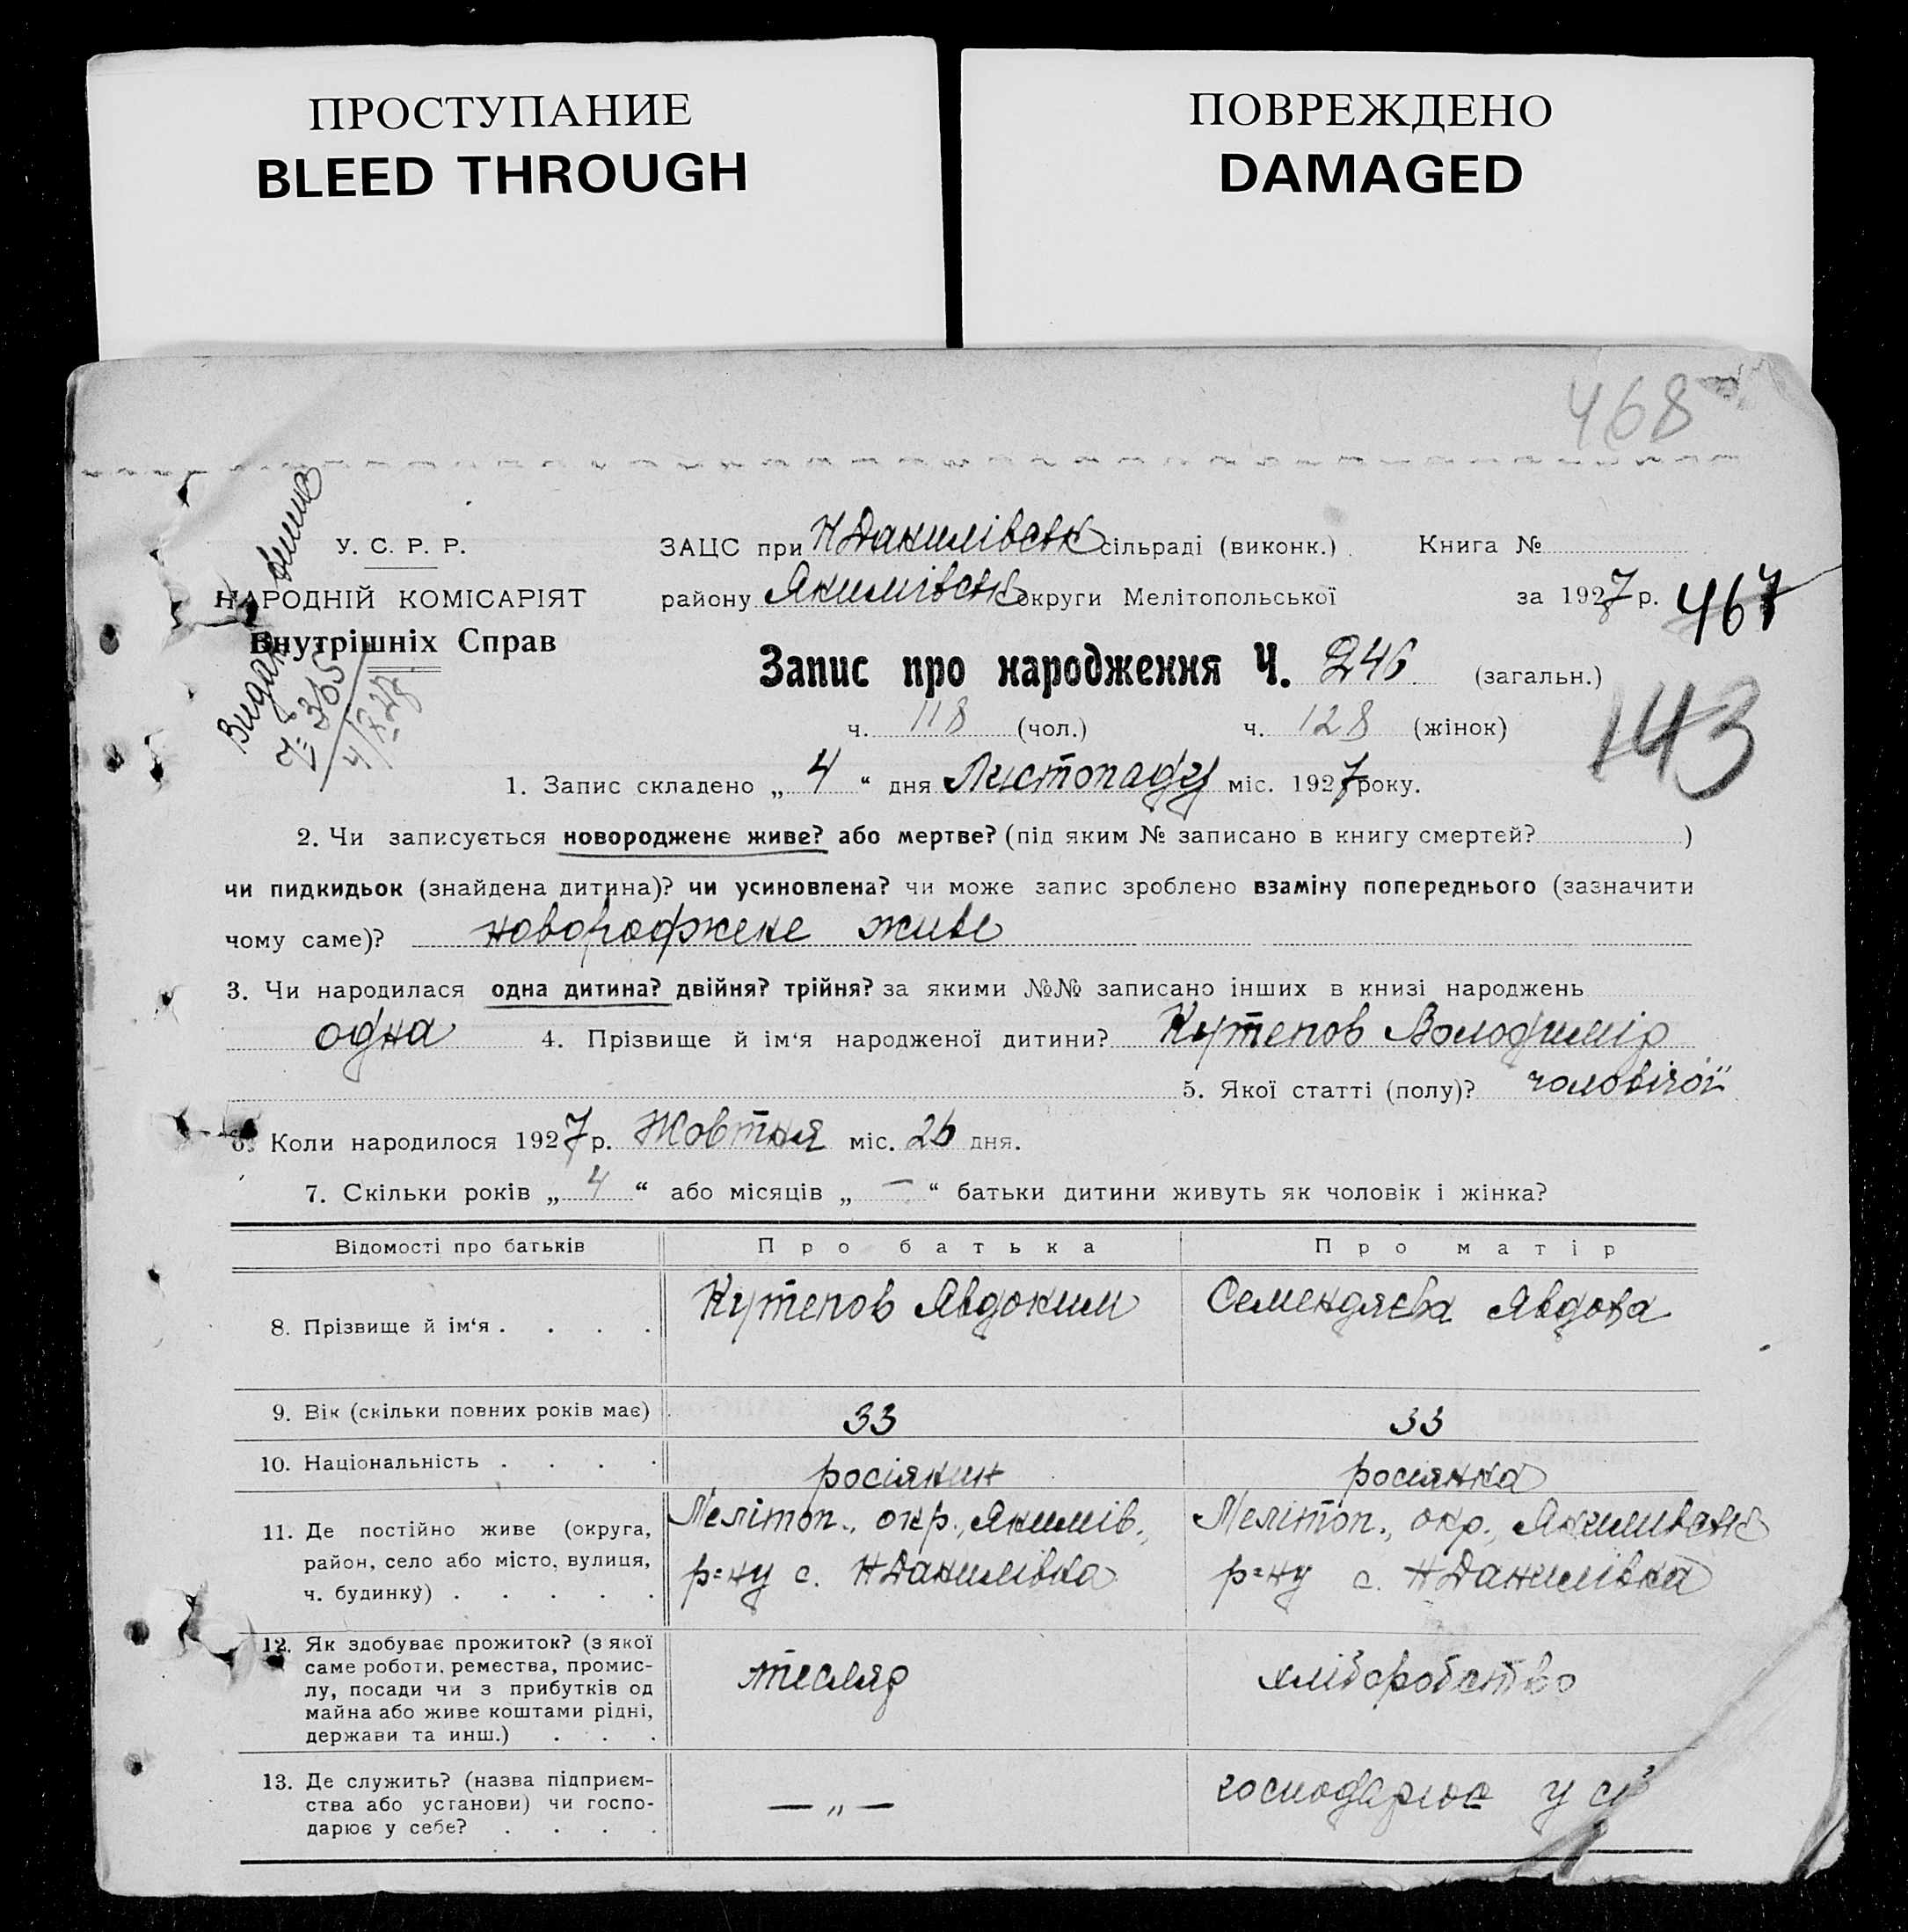 ПРОСТУПАНИЕ
BLEED THROUGH
ПОВРЕЖДЕНО
DAMAGED
468
У. С. Р. Р.
НАРОДНІЙ КОМІСАРІЯТ
Внутрішніх Справ
ЗАЦС при НДанилівськ сільраді (виконк.) Книга №
району Якимівськ округи Мелітопольської за 1927 р.
467
Запис про народження Ч. 246 (загальн.)
ч. 118 (чол.) ч. 128 (жінок)
143
1. Запис складено „ 4 “ дня Листопаду міс. 1927 року.
2. Чи записується новороджене живе? або мертве? (під яким № записано в книгу смертей? )
чи пидкидьок (знайдена дитина)? чи усиновлена? чи може запис зроблено взаміну попереднього (зазначити
чому саме)? новороджене живе
3. Чи народилася одна дитина? двійня? трійня? за якими №№ записано інших в книзі народжень
одна 4. Прізвище й ім‘я народженої дитини? Кутепов Володимір
5. Якої статті (полу)? чоловічої
6. Коли народилося 1927 р. Жовтня міс. 26 дня.
7. Скільки років „ 4 “ або місяців „ — “ батьки дитини живуть як чоловік і жінка?
Відомості про батьків Про батька Про матір
8. Прізвище й ім‘я . . . . Кутепов Явдоким Семендяєва Явдоха
9. Вік (скільки повних років має) 33 33
10. Національність . . . . росіянин росіянка
11. Де постійно живе (округа, Мелітоп., окр., Якимів., Мелітоп., окр., Якимивськ
район, село або місто, вулиця, р=ну с. НДанилівка р=ну с. НДанилівка
ч. будинку) . . . . .
12. Як здобуває прожиток? (з якої
саме роботи, ремества, промис-
лу, посади чи з прибутків од тесляр хліборобство
майна або живе коштами рідні,
держави та инш.) . . .
13. Де служить? (назва підприєм-
ства або установи) чи госпо- — „ — господарює у
дарює у себе? . . . .